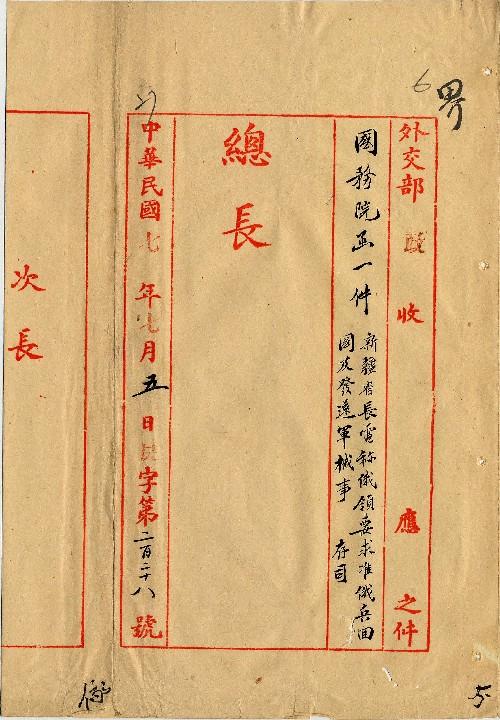 6 界
外交部 收 應 之件
國務院函一件
新疆省長電称俄領要求准俄兵回
國及發還軍械事 存司
總長
中華民國七年七月五日 字第二百二十八號
次長